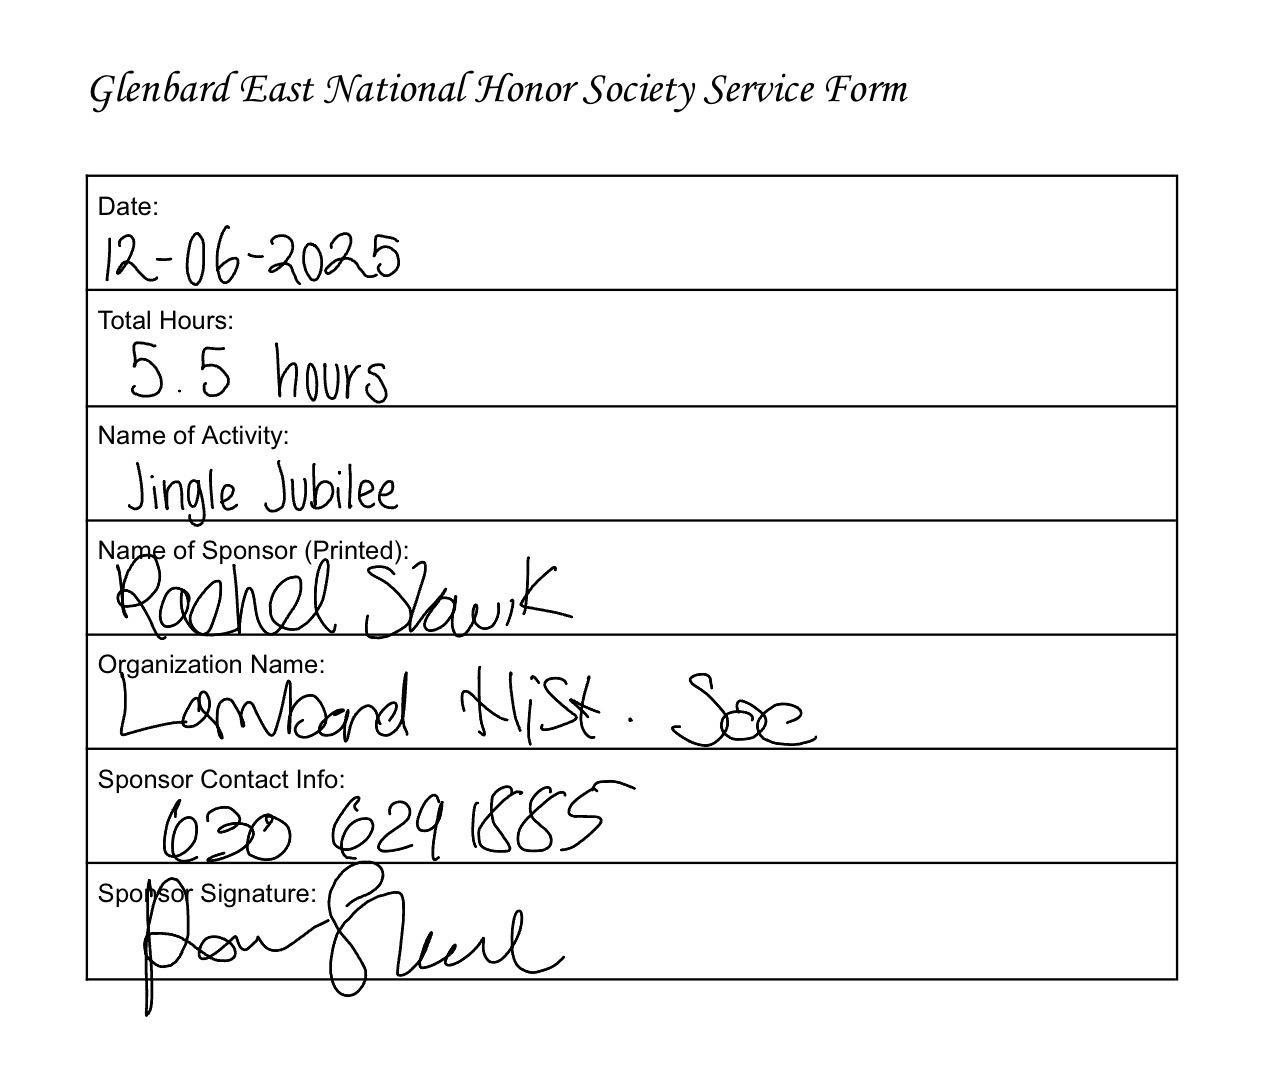 Glenbard East National Honor Society Service Form
Date:
12-06-2025
Total Hours:
5.5 hours
Name of Activity:
Jingle Jubilee
Name of Sponsor (Printed):
Rachel Slawik
Organization Name:
Lombard Hist. Soc
Sponsor Contact Info:
630 629 1885
Sponsor Signature: